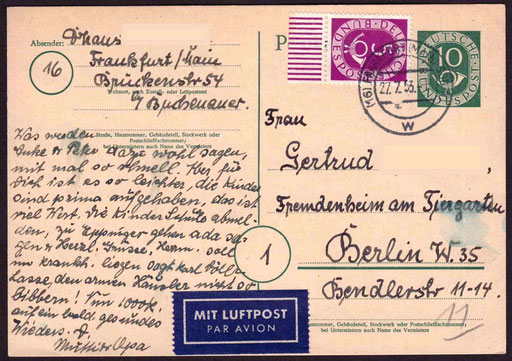 Absender:
Ohaus
Frankfurt/Main
Brückenstr 54
Wohnort, auch Zustell- oder Leitpostamt
b/ Buchenauer.
Straße, Hausnummer, Gebäudeteil, Stockwerk oder
Postschließfachnummer;
bei Untermietern auch Name des Vermieters
16
P
DEUTSCHE
BUNDESPOST
5
DEUTSCHE
BUNDESPOST
10
27.7.53
W
Was werden
Anke + Peke dazu wohl sagen,
mit mal so schnell. Aber für
Dich ist es so leichter, die Kinder
sind prima aufgehoben, das ist
viel Wert. die Kinder Schule abmel-
den, zu gehen
Herzl. Grüsse, Herm. soll
krank liegen sagt Karl
Kasse, den armen nicht so
bibbern! Nun
auf ein bald. gesundes
Wieders.
Mutti + Opa
Frau
Gertrud
Fremdenheim am Tiergarten
1
Berlin W. 35
Bendlerstr 11-14.
MIT LUFTPOST
PAR AVION
11
Straße, Hausnummer, Gebäudeteil, Stockwerk oder Postschließfachnummer;
bei Untermietern auch Name des Vermieters